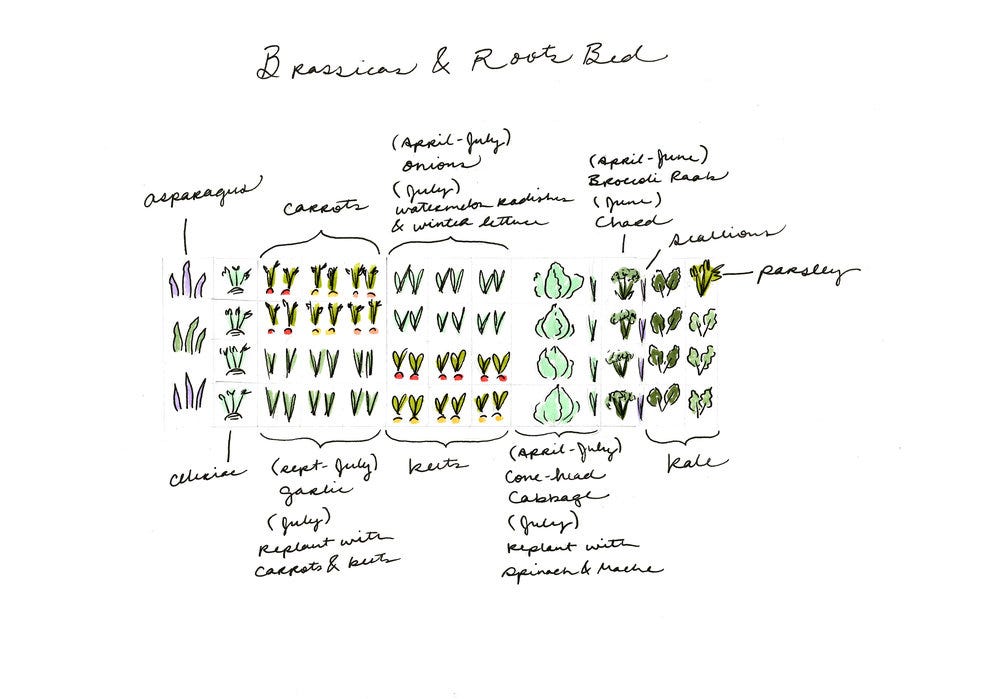 Brassicas & Roots Bed
asparagus
carrots
(April-July)
onions
(July)
watermelon radishes
& winter lettuce
(April-June)
Broccoli Raab
(June)
Chard
scallions
parsley
celeriac
(sept-July)
garlic
(July)
replant with
carrots & beets
beets
(April-July)
Cone-head
Cabbage
(July)
replant with
spinach & Mache
kale